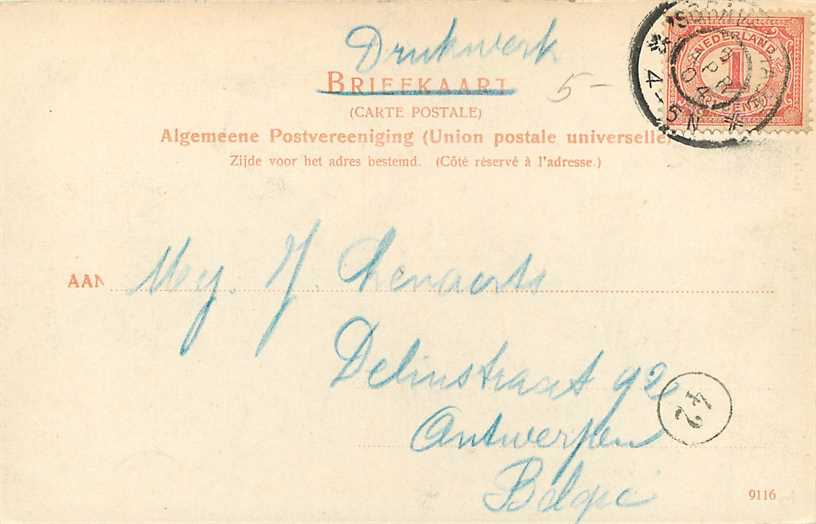 Drukwerk
BRIEFKAART
5-
(CARTE POSTALE)
Algemeene Postvereeniging (Union postale universelle)
Zijde voor het adres bestemd. (Côté réservé à l'adresse.)
NEDERLAND
1
4-5N
AAN Mej. J. Lenaerts
Delinstraat 42
Antwerpen
België
42
9116